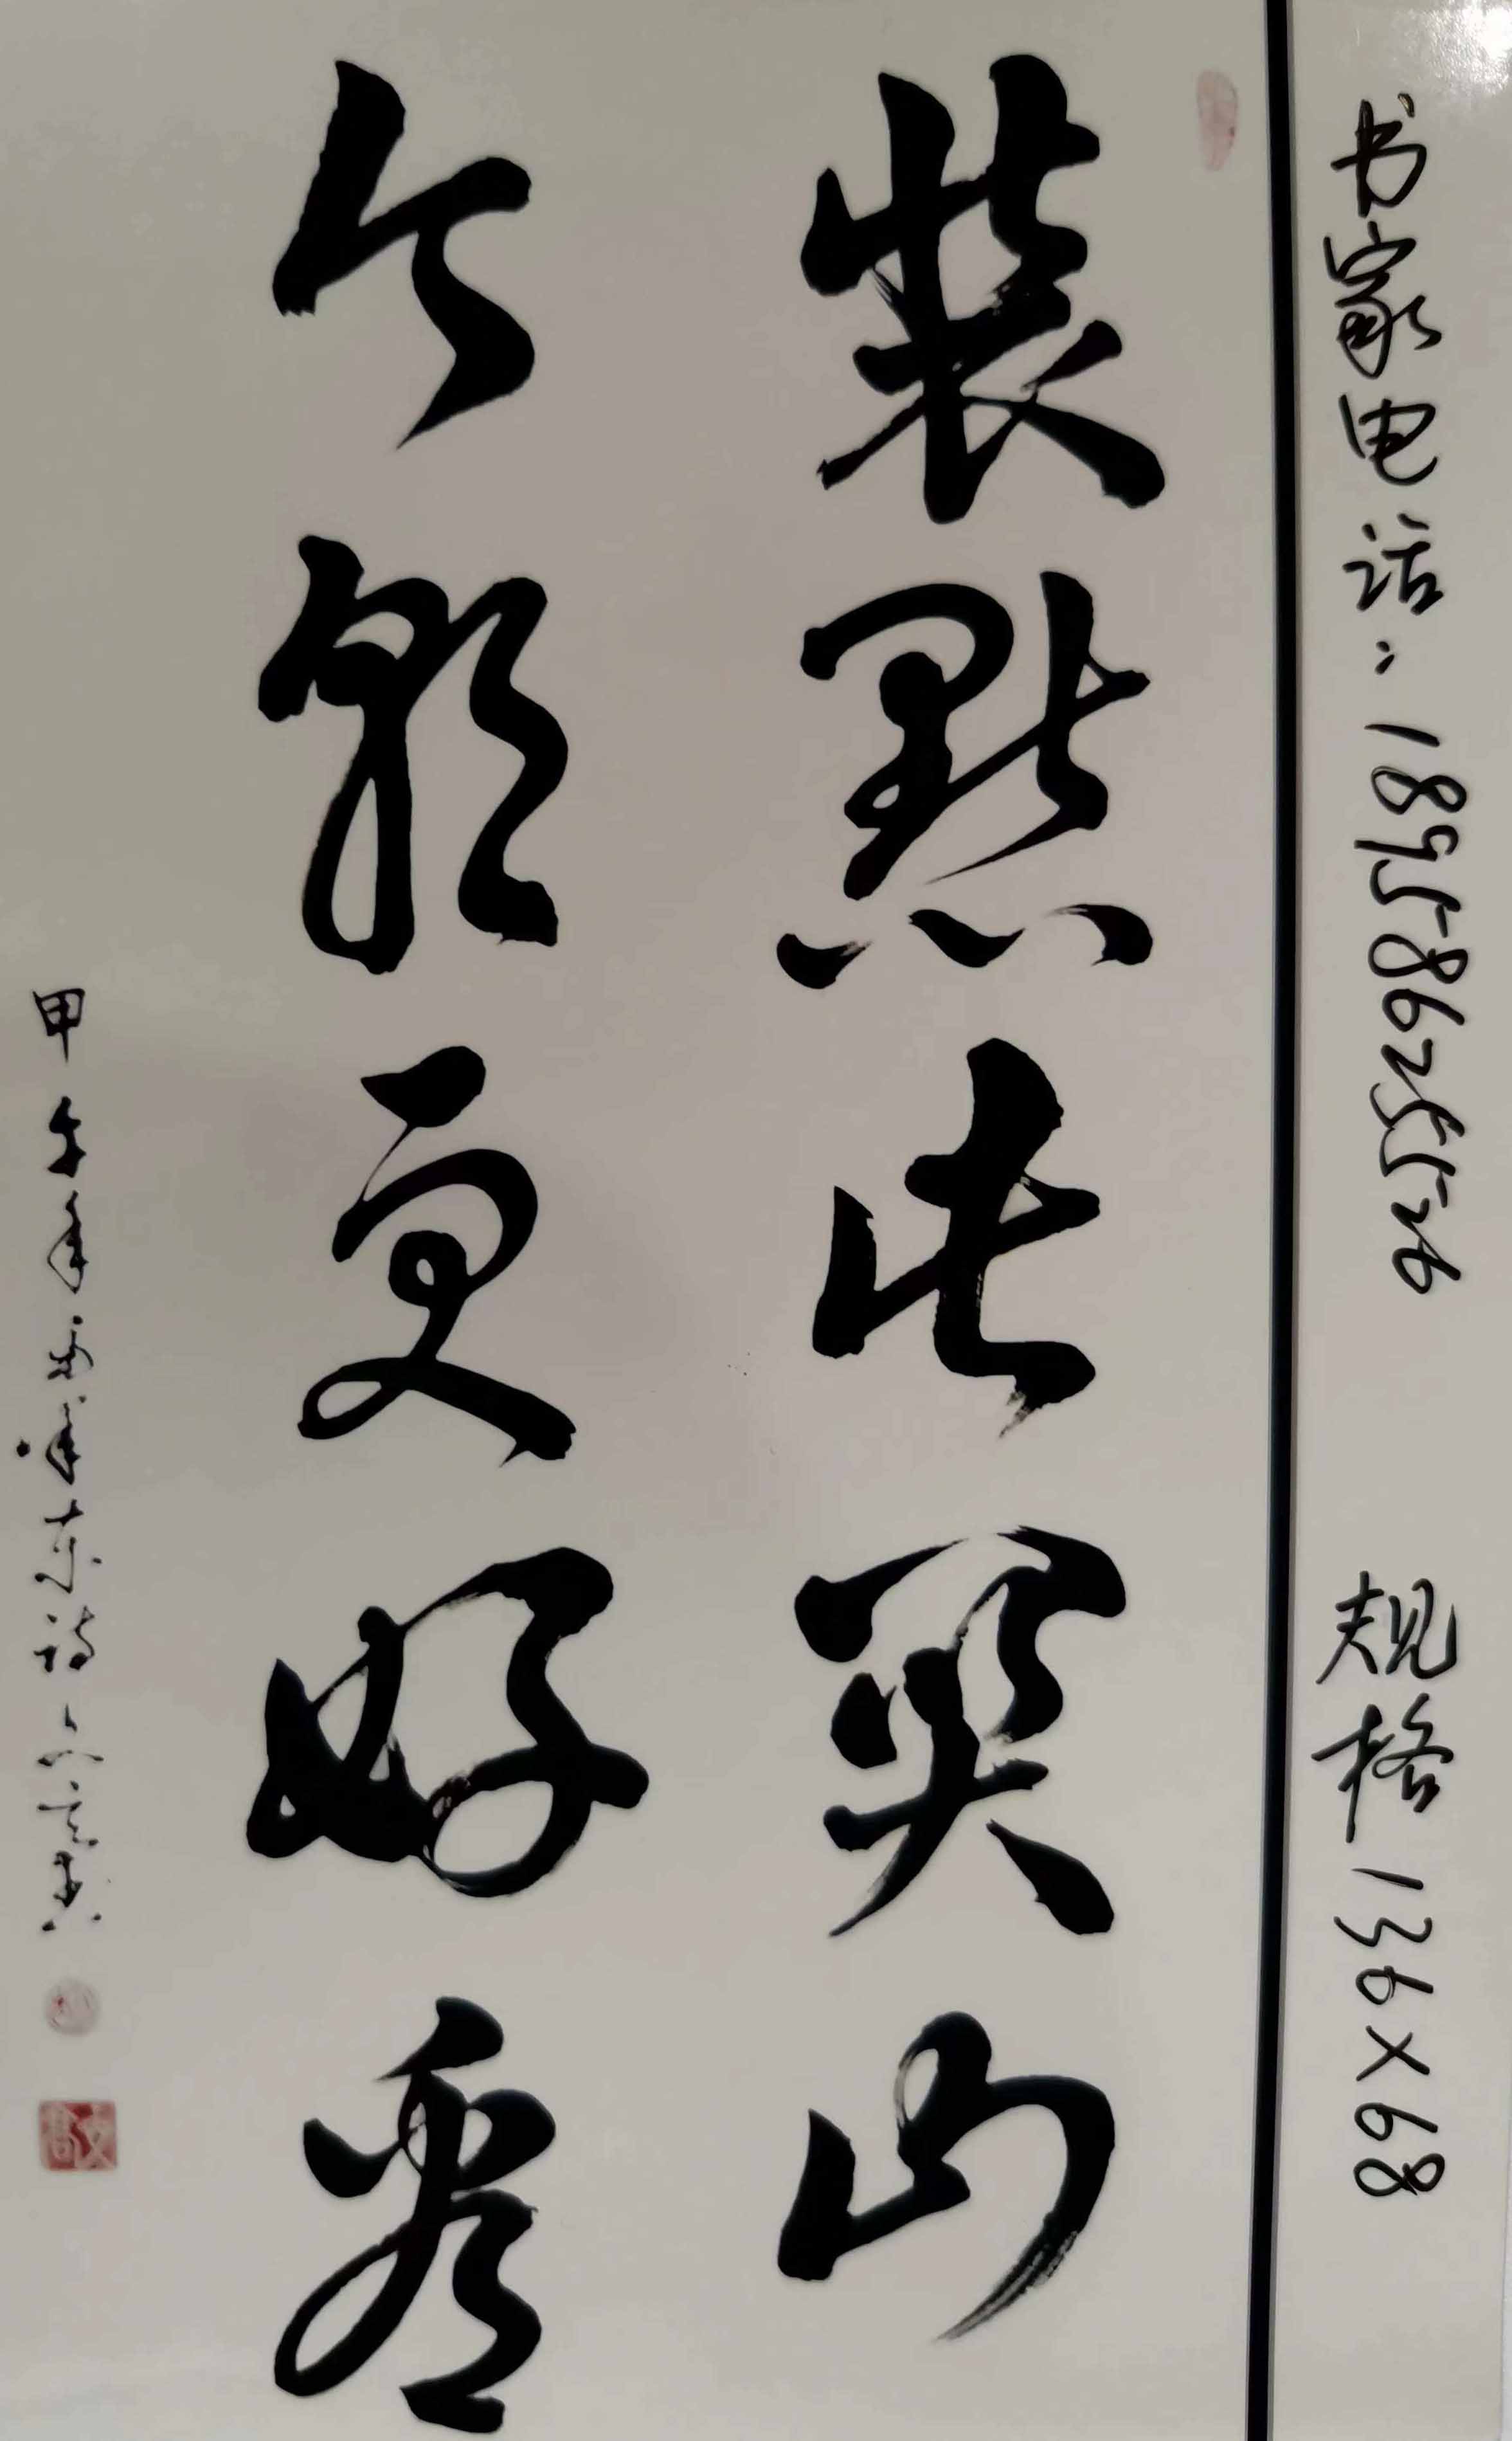 书家电话:1895-86255-26 规格136×68
裝點此關山
今朝更好看
甲午年毛泽东诗